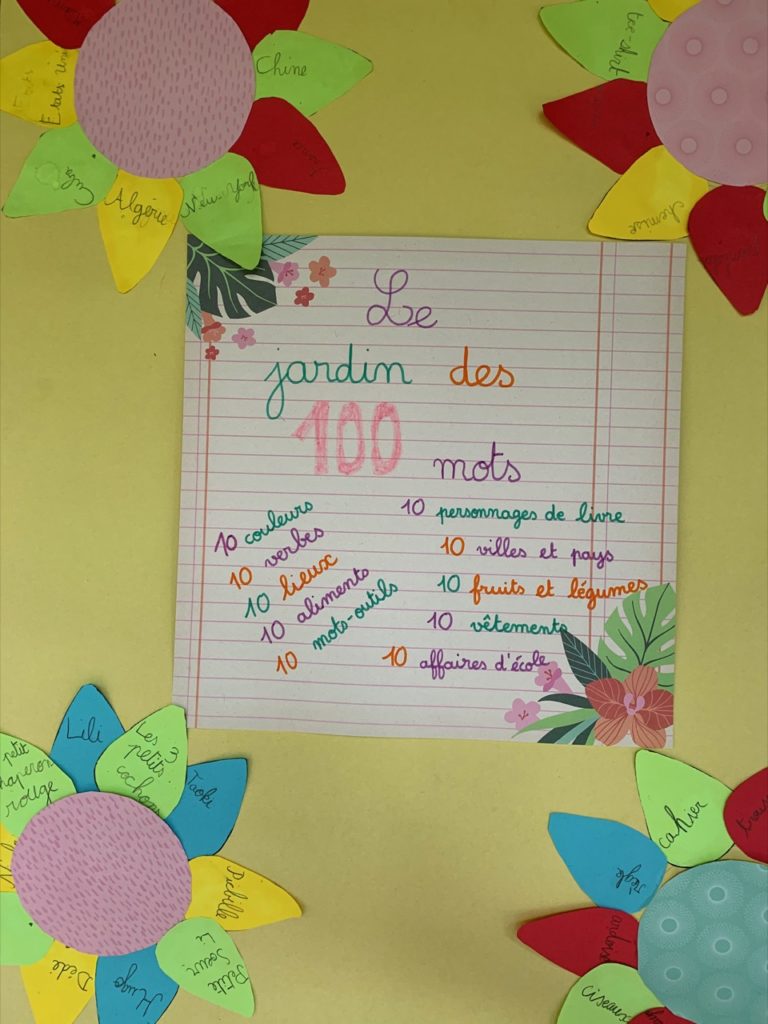 Etats Unis
Chine
France
New-York
Algérie
Cuba
tee-shirt
chemise
Le
jardin des
100
mots
10 couleurs
10 verbes
10 lieux
10 aliments
10 mots-outils
10 personnages de livre
10 villes et pays
10 fruits et légumes
10 vêtements
10 affaires d'école
petit
chaperon
rouge
Lili
Les 3
petits
cochons
Taoki
Picbille
Petite
Sœur
Hugo
Dédé
cahier
trous
règle
ardoise
ciseaux